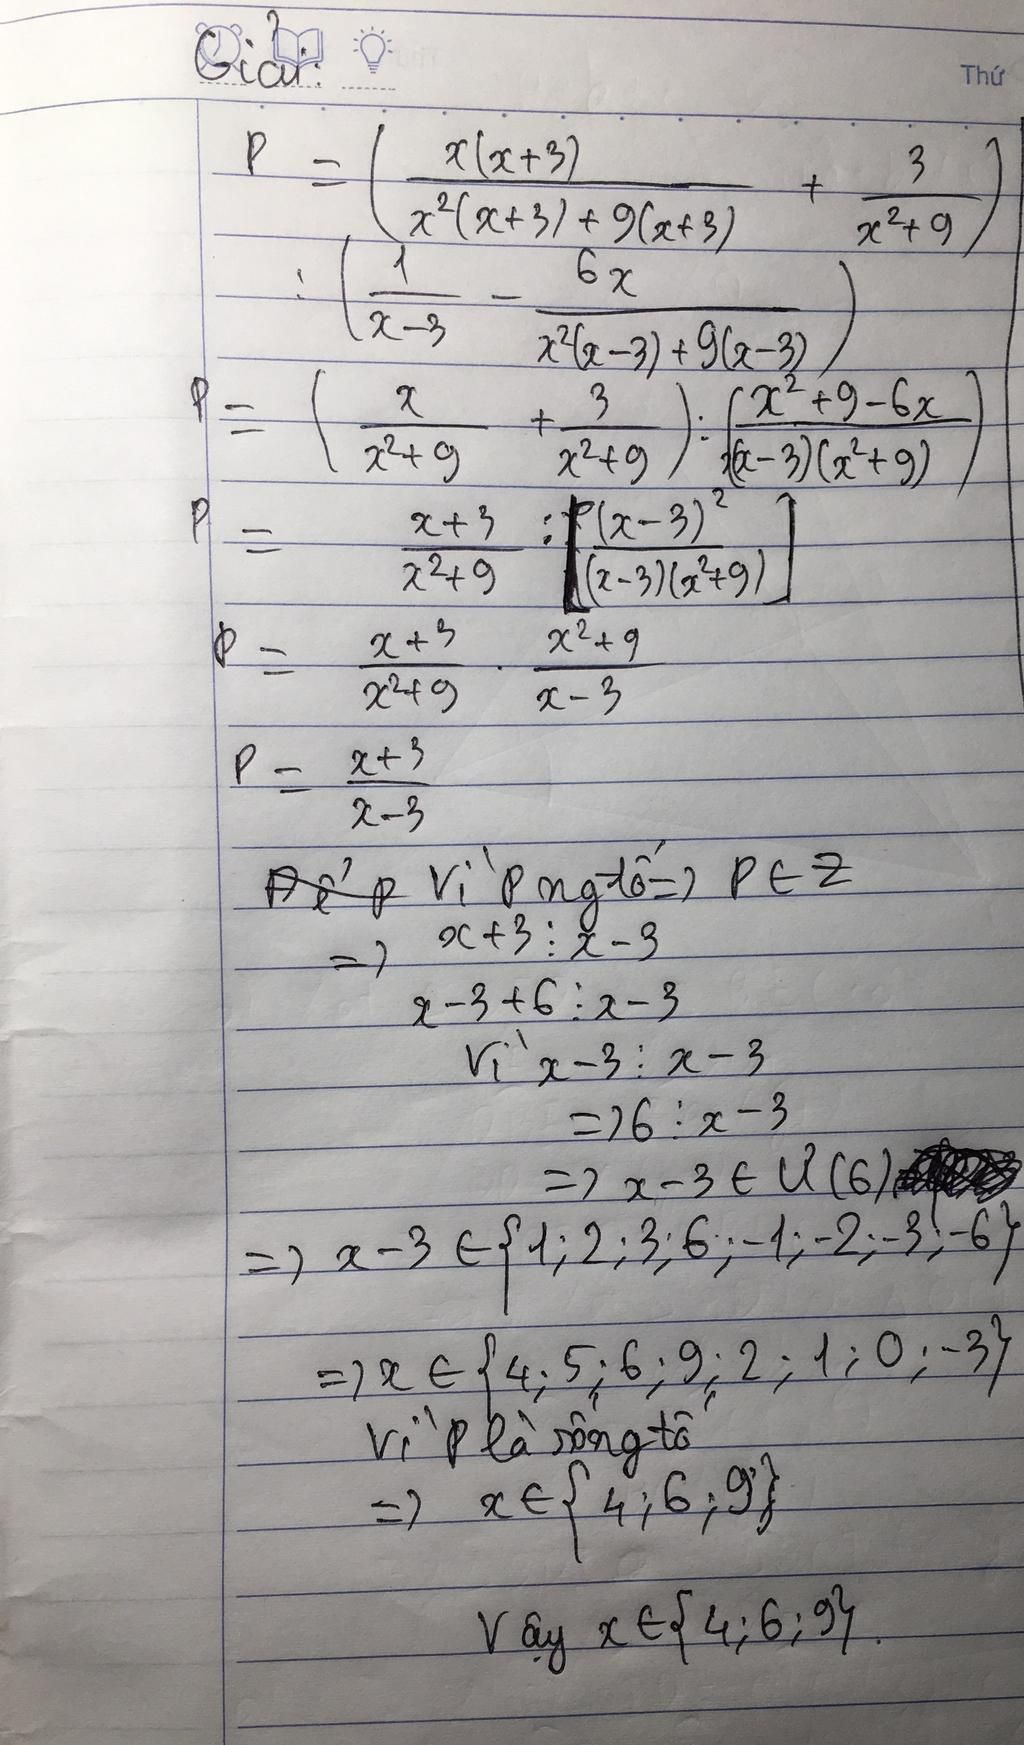 Giải:
Thứ
P = ( x(x+3) / x²(x+3) + 9(x+3) + 3 / x²+9 )
: ( 1 / x-3 - 6x / x²(x-3) + 9(x-3) )
P = ( x / x²+9 + 3 / x²+9 ) : ( x²+9-6x / (x-3)(x²+9) )
P = x+3 / x²+9 : [ (x-3)² / (x-3)(x²+9) ]
P = x+3 / x²+9 . x²+9 / x-3
P = x+3 / x-3
Vì P ng tố => P ∈ Z
=> x+3 ⋮ x-3
x-3+6 ⋮ x-3
Vì x-3 ⋮ x-3
=> 6 ⋮ x-3
=> x-3 ∈ Ư(6)
=> x-3 ∈ {1; 2; 3; 6; -1; -2; -3; -6}
=> x ∈ {4; 5; 6; 9; 2; 1; 0; -3}
Vì P là số ng tố
=> x ∈ {4; 6; 9}
Vậy x ∈ {4; 6; 9}.